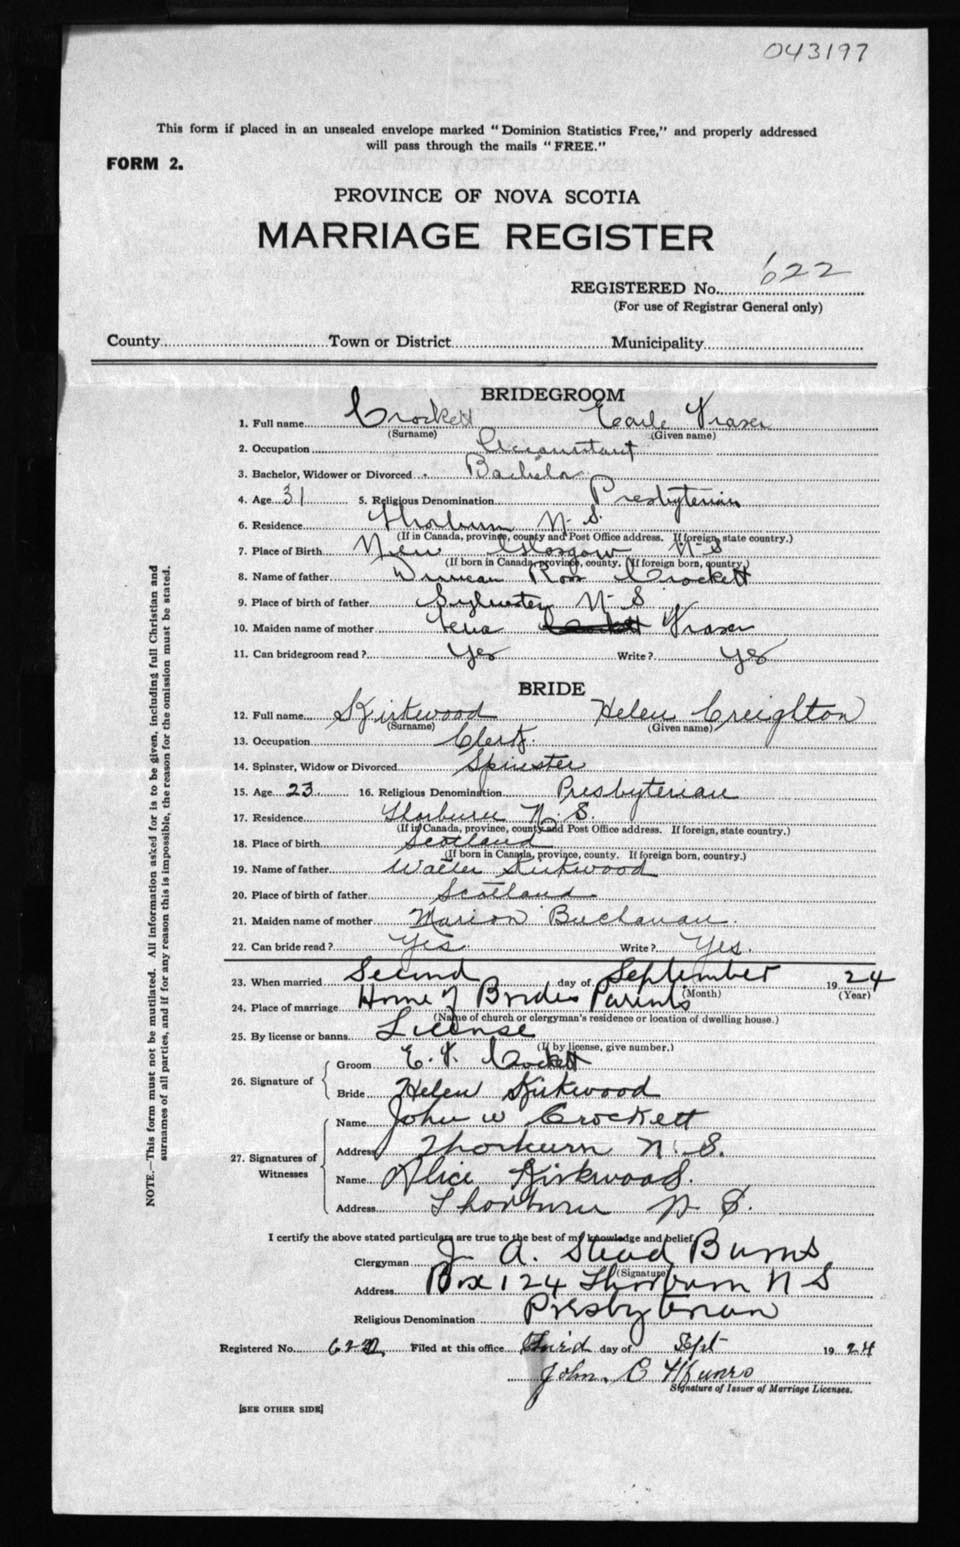 043197
This form if placed in an unsealed envelope marked "Dominion Statistics Free," and properly addressed
will pass through the mails "FREE."
FORM 2.
PROVINCE OF NOVA SCOTIA
MARRIAGE REGISTER
REGISTERED No. 622
(For use of Registrar General only)
County Town or District Municipality
BRIDEGROOM
1. Full name Crockett Earle Fraser
(Surname) (Given name)
2. Occupation Accountant
3. Bachelor, Widower or Divorced Bachelor
4. Age 31 5. Religious Denomination Presbyterian
6. Residence Thorburn N.S.
(If in Canada, province, county and Post Office address. If foreign, state country.)
7. Place of Birth New Glasgow N-S
(If born in Canada, province, county. If foreign born, country.)
8. Name of father Duncan Ross Crockett
9. Place of birth of father Sylvester N-S
10. Maiden name of mother Fraser
11. Can bridegroom read? Yes Write? Yes
BRIDE
12. Full name Kirkwood Helen Creighton
(Surname) (Given name)
13. Occupation Clerk.
14. Spinster, Widow or Divorced Spinster
15. Age 23 16. Religious Denomination Presbyterian
17. Residence Thorburn N. S.
(If in Canada, province, county and Post Office address. If foreign, state country.)
18. Place of birth Scotland
(If born in Canada, province, county. If foreign born, country.)
19. Name of father Walter Kirkwood
20. Place of birth of father Scotland
21. Maiden name of mother Marion Buchanan.
22. Can bride read? Yes. Write? Yes.
23. When married Second day of September 1924
(Month) (Year)
24. Place of marriage Home of Brides Parents
(Name of church or clergyman's residence or location of dwelling house.)
25. By license or banns License
(If by license, give number.)
26. Signature of Groom E. F. Crockett
Bride Helen Kirkwood
27. Signatures of Witnesses Name John W Crockett
Address Thorburn N. S.
Name Alice Kirkwood.
Address Thorburn N. S.
I certify the above stated particulars are true to the best of my knowledge and belief,
Clergyman J. A. Stead Burns
(Signature)
Address Box 124 Thorburn N S
Religious Denomination Presbyterian
Registered No. 622, Filed at this office Third day of Sept 1924
John. C Munro
Signature of Issuer of Marriage Licenses.
[SEE OTHER SIDE]
NOTE.—This form must not be mutilated. All information asked for is to be given, including full Christian and
surnames of all parties, and if for any reason this is impossible, the reason for the omission must be stated.